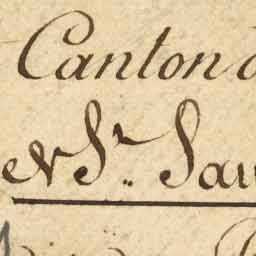 Canton d
er St. Sau